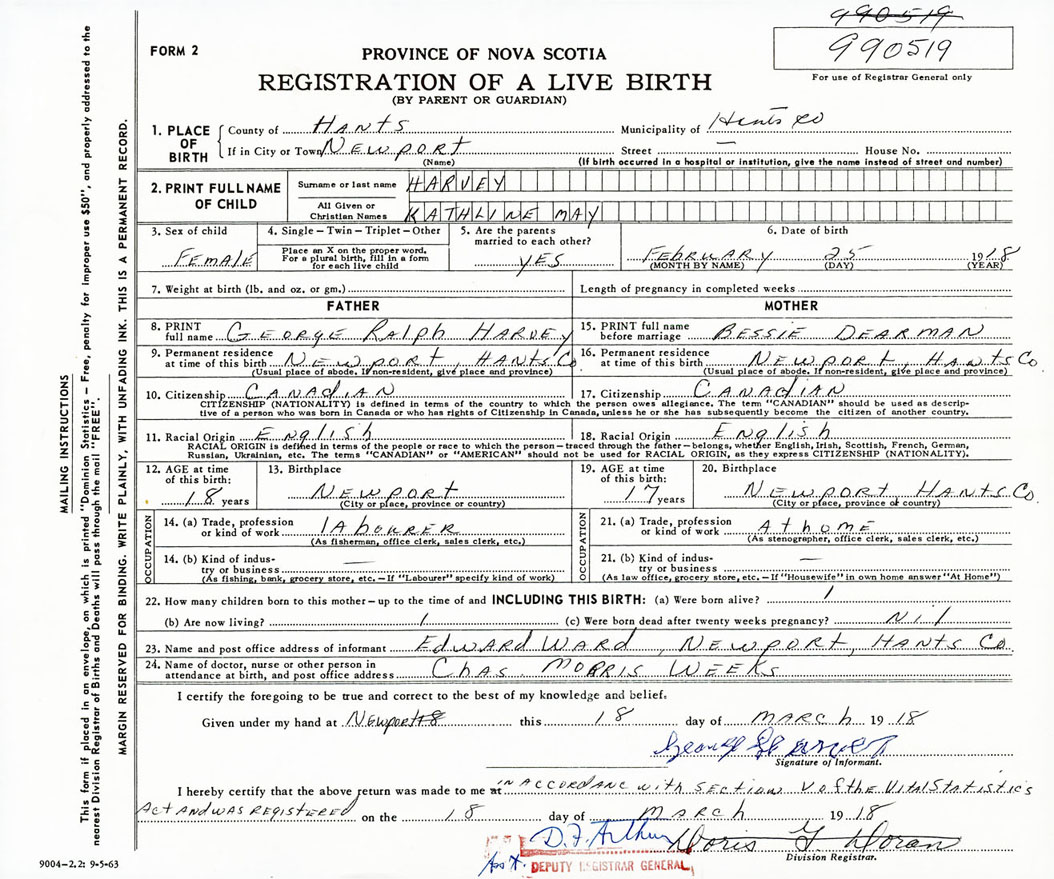 990519
FORM 2
PROVINCE OF NOVA SCOTIA
990519
REGISTRATION OF A LIVE BIRTH
For use of Registrar General only
(BY PARENT OR GUARDIAN)
1. PLACE OF BIRTH
County of HANTS Municipality of Hants Co
If in City or Town NEWPORT Street — House No.
(Name) (If birth occurred in a hospital or institution, give the name instead of street and number)
2. PRINT FULL NAME OF CHILD
Surname or last name HARVEY
All Given or Christian Names KATHLINE MAY
3. Sex of child
FEMALE
4. Single - Twin - Triplet - Other
Place an X on the proper word.
For a plural birth, fill in a form
for each live child
5. Are the parents
married to each other?
YES
6. Date of birth
FEBRUARY 25 1918
(MONTH BY NAME) (DAY) (YEAR)
7. Weight at birth (lb. and oz. or gm.) Length of pregnancy in completed weeks
FATHER MOTHER
8. PRINT full name GEORGE RALPH HARVEY
15. PRINT full name before marriage BESSIE DEARMAN
9. Permanent residence at time of this birth NEWPORT, HANTS Co
(Usual place of abode. If non-resident, give place and province)
16. Permanent residence at time of this birth NEWPORT, HANTS Co
(Usual place of abode. If non-resident, give place and province)
10. Citizenship CANADIAN 17. Citizenship CANADIAN
CITIZENSHIP (NATIONALITY) is defined in terms of the country to which the person owes allegiance. The term "CANADIAN" should be used as descrip-
tive of a person who was born in Canada or who has rights of Citizenship in Canada, unless he or she has subsequently become the citizen of another country.
11. Racial Origin English 18. Racial Origin English
RACIAL ORIGIN is defined in terms of the people or race to which the person—traced through the father—belongs, whether English, Irish, Scottish, French, German,
Russian, Ukrainian, etc. The terms "CANADIAN" or "AMERICAN" should not be used for RACIAL ORIGIN, as they express CITIZENSHIP (NATIONALITY).
12. AGE at time
of this birth:
18 years
13. Birthplace
NEWPORT
(City or place, province or country)
19. AGE at time
of this birth:
17 years
20. Birthplace
NEWPORT HANTS Co.
(City or place, province or country)
OCCUPATION
14. (a) Trade, profession
or kind of work LABOURER
(As fisherman, office clerk, sales clerk, etc.)
14. (b) Kind of indus-
try or business —
(As fishing, bank, grocery store, etc.—If "Labourer" specify kind of work)
OCCUPATION
21. (a) Trade, profession
or kind of work At home
(As stenographer, office clerk, sales clerk, etc.)
21. (b) Kind of indus-
try or business —
(As law office, grocery store, etc.—If "Housewife" in own home answer "At Home")
22. How many children born to this mother—up to the time of and INCLUDING THIS BIRTH: (a) Were born alive? 1
(b) Are now living? 1 (c) Were born dead after twenty weeks pregnancy? Nil
23. Name and post office address of informant EDWARD WARD, NEWPORT, HANTS Co.
24. Name of doctor, nurse or other person in
attendance at birth, and post office address CHAS. MORRIS WEEKS
I certify the foregoing to be true and correct to the best of my knowledge and belief.
Given under my hand at NEWPORT this 18 day of MARCH 1918
Signature of Informant.
I hereby certify that the above return was made to me at IN ACCORDANCE with SECTION V of the VITAL STATISTICS
ACT AND WAS REGISTERED on the 18 day of MARCH 1918
D. F. Arthur Doris G. Doran
Division Registrar.
Asst. DEPUTY REGISTRAR GENERAL
9004-2.2: 9-5-63
MAILING INSTRUCTIONS
This form if placed in an envelope, on which is printed "Dominion Statistics – Free, penalty for improper use $50", and properly addressed to the
nearest Division Registrar of Births and Deaths will pass through the mail "FREE".
MARGIN RESERVED FOR BINDING. WRITE PLAINLY, WITH UNFADING INK. THIS IS A PERMANENT RECORD.